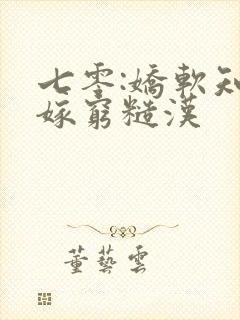 七零:嬌軟知
嫁窮糙漢
董藝雲